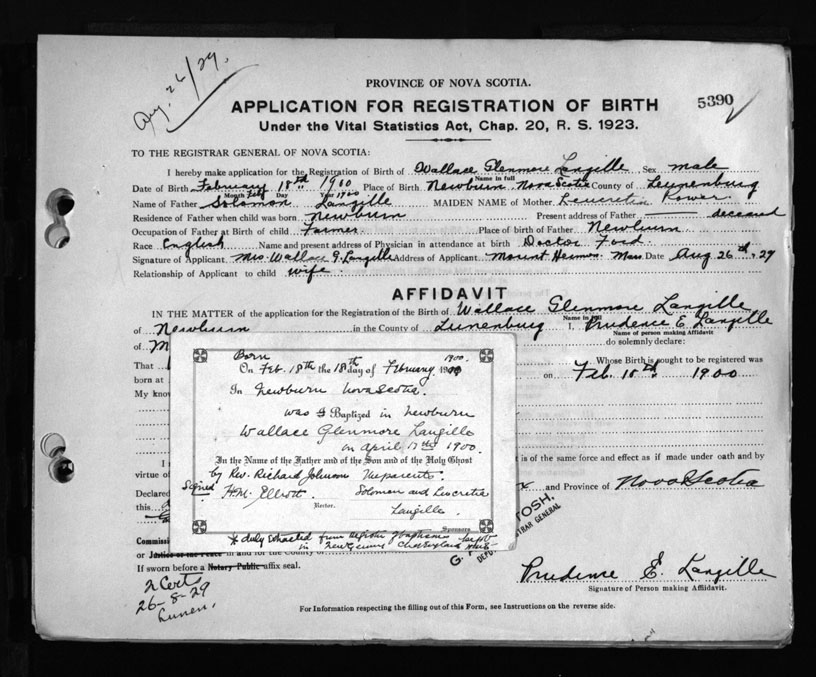 Aug. 26/29.
PROVINCE OF NOVA SCOTIA.
APPLICATION FOR REGISTRATION OF BIRTH
5390
Under the Vital Statistics Act, Chap. 20, R. S. 1923.
TO THE REGISTRAR GENERAL OF NOVA SCOTIA:
I hereby make application for the Registration of Birth of Wallace Glenmore Langille Sex male
Name in full
Date of Birth February 18th 1900 Place of Birth Newburn, Nova Scotia County of Lunenburg
Month Feb Day Year 1900
Name of Father Solomon Langille MAIDEN NAME of Mother Leucretia Power
Residence of Father when child was born Newburn Present address of Father deceased
Occupation of Father at Birth of child Farmer Place of birth of Father Newburn
Race English Name and present address of Physician in attendance at birth Doctor Ford
Signature of Applicant Mrs. Wallace G. Langille Address of Applicant Mount Hermon Mass. Date Aug 26th, 29
Relationship of Applicant to child wife
AFFIDAVIT
IN THE MATTER of the application for the Registration of the Birth of Wallace Glenmore Langille
Name in full
of Newburn in the County of Lunenburg I, Prudence E. Langille
Name of person making Affidavit
of M do solemnly declare:
That Whose Birth is sought to be registered was
born at on Feb. 18th 1900
My know
Born
On Feb. 18th the 18th day of February, 1900.
In Newburn Nova Scotia.
was Baptized in Newburn
Wallace Glenmore Langille
on April 17th 1900.
In the Name of the Father and of the Son and of the Holy Ghost
by Rev. Richard Johnson The parents
Signed H.M. Elliott. Solomon and Leucretia
Rector. Langille.
Sponsors
duly extracted from register
in New Germany
I is of the same force and effect as if made under oath and by
virtue of
Declared and Province of Nova Scotia
this
TOSH,
DEPUTY REGISTRAR GENERAL
Commiss
or Justice of the Peace in and for the County of
If sworn before a Notary Public affix seal.
2 Certs
26-8-29
Lunen.
Prudence E. Langille
Signature of Person making Affidavit.
For Information respecting the filling out of this Form, see Instructions on the reverse side.